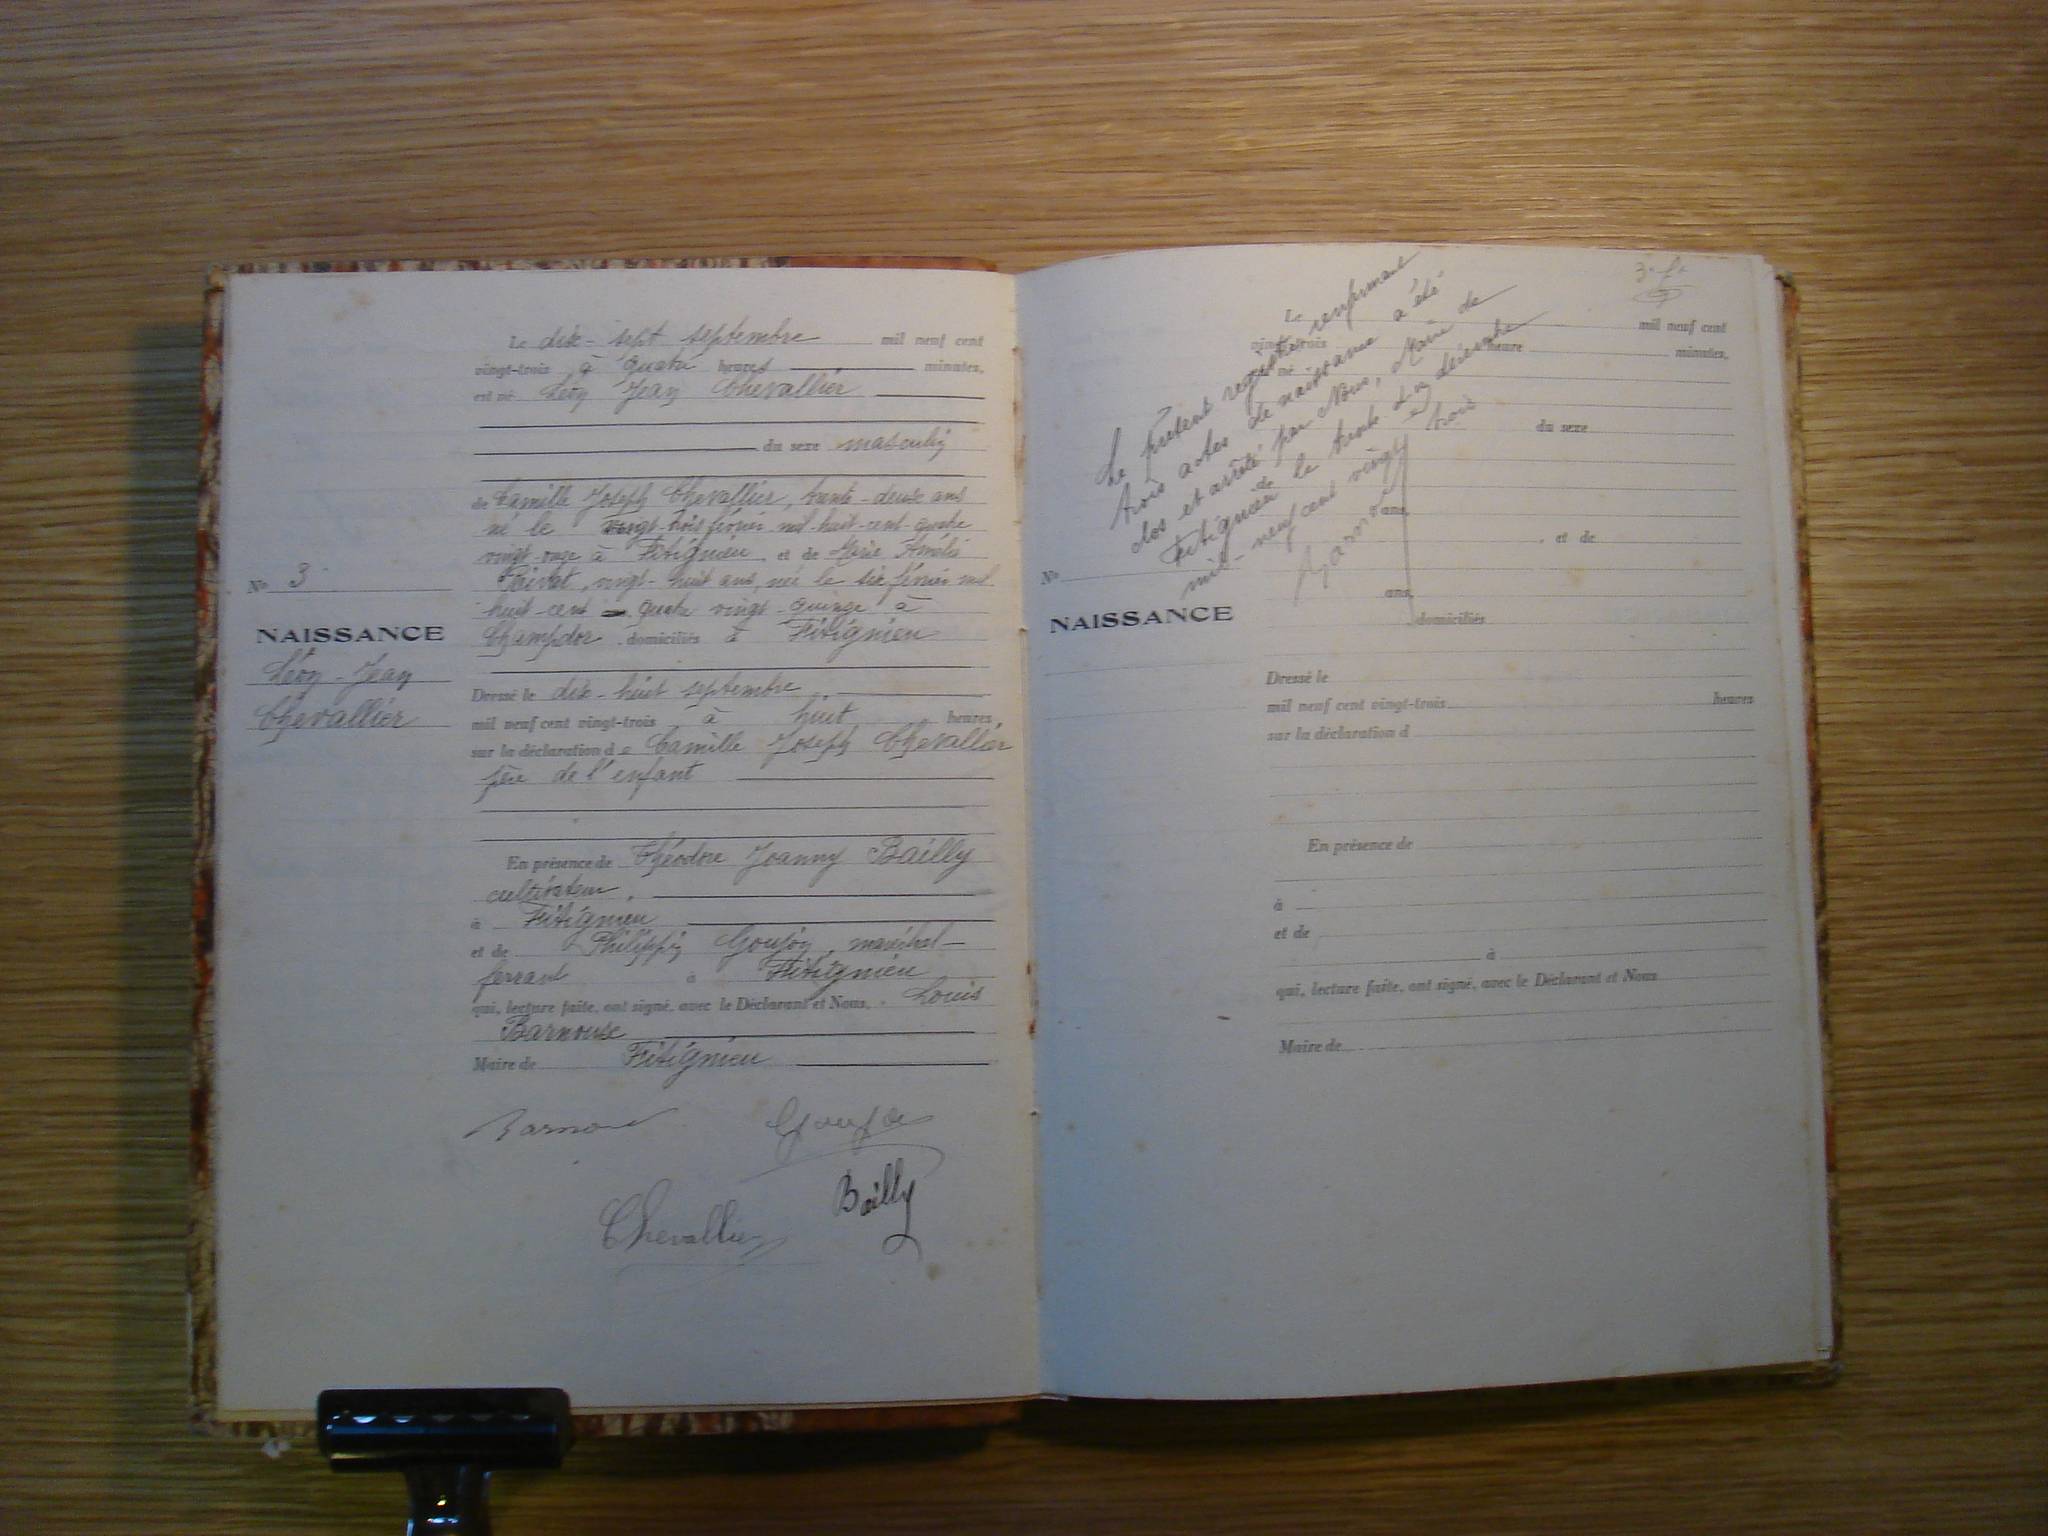 Le dix-sept septembre mil neuf cent
vingt-trois à quatre heures minutes,
est né Léon Jean Chevallier
du sexe masculin
de Camille Joseph Chevallier, trente-deux ans
né le vingt-trois février mil-huit-cent-quatre
vingt-onze à Fitignieu et de Marie Amélie
vingt-huit ans, née le six février mil
huit-cent quatre vingt-quinze à
Champdor domiciliés à Fitignieu
No 3
NAISSANCE
Léon-Jean
Chevallier
Dressé le dix-huit septembre
mil neuf cent vingt-trois à huit heures,
sur la déclaration de Camille Joseph Chevallier
père de l'enfant
En présence de Théodore Joanny Bailly
cultivateur,
à Fitignieu
et de Philippe Goujon, maréchal-
ferrant à Fitignieu
qui, lecture faite, ont signé, avec le Déclarant et Nous, Louis
Barnouse
Maire de Fitignieu
Goujon
Chevallier Bailly
Le présent registre renfermant
trois actes de naissance a été
clos et arrêté par Nous, Maire de
Fitignieu le trente et un décembre
mil-neuf cent vingt trois
Le mil neuf cent
vingt-trois heure minutes,
né
du sexe
de
ans,
, et de
ans,
domiciliés
No
NAISSANCE
Dressé le
mil neuf cent vingt-trois heures
sur la déclaration d
En présence de
à
et de
à
qui, lecture faite, ont signé, avec le Déclarant et Nous
Maire de